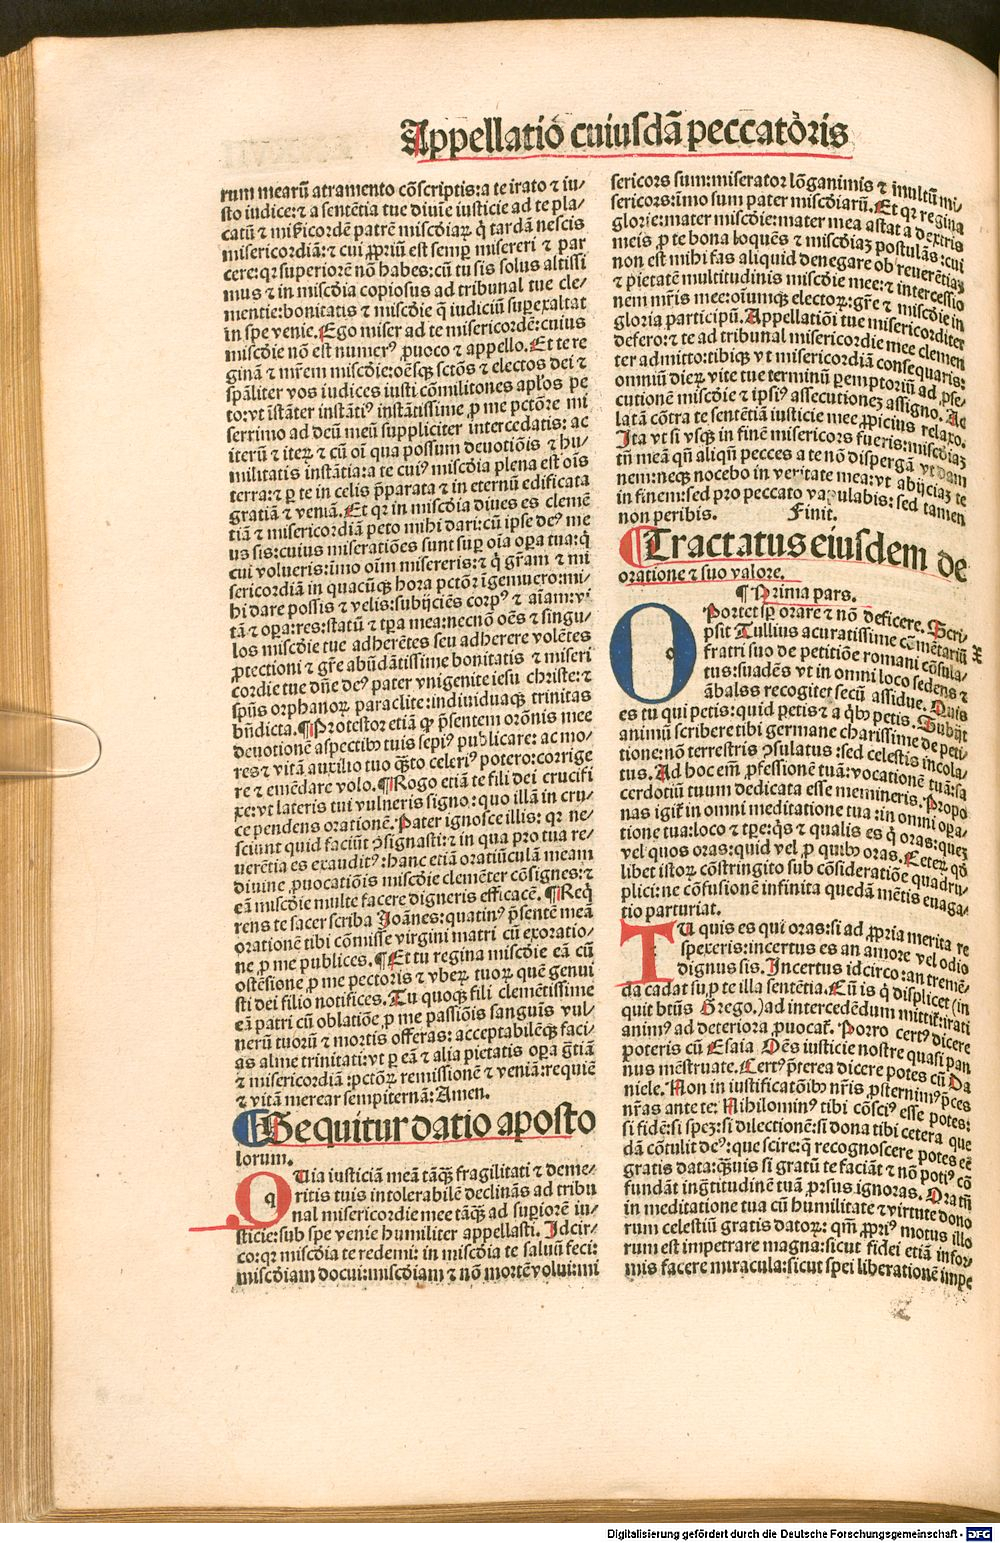 Appellatio cuiusdã peccatoris
rum mearũ atramento cõscriptis:a te irato ⁊ iu⸗
sto iudice:⁊ a sentẽtia tue diuiẽ iusticie ad te pla⸗
catũ ⁊ mĩcordẽ patrẽ miscõiaꝝ q̃ tardã nescis
misericordiã:⁊ cui ꝓpriũ est semꝑ misereri ⁊ par
cere:qꝛ superiorẽ nõ habes:cũ tu sis solus altissi
mus ⁊ in miscõia copiosus ad tribunal tue cle⸗
mentie:bonitatis ⁊ miscõie q̃ iudiciũ suꝑexaltat
in spe venie. Ego miser ad te misericordẽ:cuius
miscõie nõ est numerꝰ ꝓuoco ⁊ appello. Et te re
ginã ⁊ mřem miscõie:oẽsqꝫ sctõs ⁊ electos dei ⁊
spãliter vos iudices iusti cõmilitones apłos pe
to:vt ĩstãter instãtiꝰ instãtissime ꝓ me pctõre mi
serrimo ad deũ meũ suppliciter intercedatis: ac
iterũ ⁊ iteꝝ ⁊ cũ oi qua possum deuotiõis ⁊ hu⸗
militatis instãtia:a te cuiꝰ miscõia plena est oĩs
terra:⁊ ꝑ te in celis p̃parata ⁊ in eternũ edificata
gratiã ⁊ veniã. Et qꝛ in miscõia diues es clemẽ
tiã ⁊ misericordiã peto mihi dari:cũ ipse deꝰ me
us sis:cuius miseratiões sunt suꝑ oĩa oꝑa tua:q̃
cui volueris:imo oĩm misereris:⁊ q̃ gřam ⁊ mi
sericordiã in quacũqꝫ hora pctõr ĩgemuero:mi⸗
hi dare possis ⁊ velis:subijciẽs corpꝰ ⁊ aĩam:vi
tã ⁊ oꝑa:res:statũ ⁊ tꝑa mea:necnõ oẽs ⁊ singu⸗
los miscõie tue adherẽtes seu adherere volẽtes
ꝓtectioni ⁊ gře abũdãtissime bonitatis ⁊ miseri
cordie tue dñe deꝰ pater vnigenite iesu christe:⁊
spũs orphanoꝝ paraclite:indiuiduaqꝫ trinitas
bñdicta. ¶Protestor etiã ꝙ p̃sentem orõnis mee
deuotionẽ aspectibꝰ tuis sepiꝰ publicare: ac mo⸗
res ⁊ vitã auxilio tuo q̃sto celeriꝰ potero:corrige
re ⁊ emẽdare volo. ¶Rogo etiã te fili dei crucifi
xe:vt lateris tui vulneris signo:quo illã in cru⸗
ce pendens orationẽ. Pater ignosce illis: qꝛ ne⸗
sciunt quid faciũt ꝯsignasti:⁊ in qua pro tua re⸗
uerẽtia es exauditꝰ:hanc etiã oratiũculã meam
diuine ꝓuocatiõis miscõie clemẽter cõsignes:⁊
eã miscõie multe facere digneris efficacẽ. ¶Req̃
rens te sacer scriba Joãnes:quatinꝰ p̃sentẽ meã
orationẽ tibi cõmisse virgini matri cũ exoratio⸗
ne ꝓ me publices. ¶Et tu regina miscõie eã cũ
ostẽsione ꝓ me pectoris ⁊ vbeꝝ tuoꝝ quẽ genui
sti dei filio notifices. Tu quoqꝫ fili clemẽtissime
eã patri cũ oblatiõe ꝓ me passiõis sanguis vul⸗
nerũ tuorũ ⁊ mortis offeras: acceptabilẽqꝫ faci⸗
as alme trinitati:vt ꝑ eã ⁊ alia pietatis oꝑa gr̃tiã
⁊ misericordiã :pctõꝝ remissionẽ ⁊ veniã:requiẽ
⁊ vitã merear sempiternã:Amen.
¶Sequitur datio aposto
lorum.
Quia iusticiã meã tãqꝫ fragilitati ⁊ deme⸗
ritis tuis intolerabilẽ declinãs ad tribu
nal misericordie mee tãqꝫ ad suꝑiorẽ iu⸗
sticie:sub spe venie humiliter appellasti. Idcir⸗
co:qꝛ miscõia te redemi: in miscõia te saluũ feci:
miscõiam docui:miscõiam ⁊ nõ mortẽ volui:mi
sericors sum:miserator lõganimis ⁊ multũ mi⸗
sericors:imo sum pater miscõiarũ. Et qꝛ regina
glorie:mater miscõie:mater mea astat a dextris
meis ꝓ te bona loquẽs ⁊ miscõiaꝫ postulãs:cui
non est mihi fas aliquid denegare ob reuerẽtiaꝫ
⁊ pietatẽ multitudinis miscõie mee:⁊ intercessio
nem mřis mee:oĩumqꝫ electoꝝ:gře ⁊ miscõie in
gloria participũ. Appellatiõi tue misericorditer
defero:⁊ te ad tribunal misericordie mee clemen
ter admitto:tibiqꝫ vt misericordiã consequaris:
omniũ dieꝝ vite tue terminũ ꝑemptoriũ ad ꝓse⸗
cutionẽ miscõie ⁊ ipsiꝰ assecutioneꝫ assigno. Ac
latã cõtra te sentẽtiã iusticie mee ꝓpicius relaxo.
Ita vt si vsqꝫ in finẽ misericors fueris:miscõiaꝫ
tñ meã qñ aliqñ pecces a te nõ dispergã vt dam
nem:necqꝫ nocebo in veritate mea:vt abijciaꝫ te
in finem:sed pro peccato vapulabis: sed tamen
non peribis. Finit.
¶Tractatus eiusdem de
oratione ⁊ suo valore.
¶ Prima pars.
OPortet sꝑ orare ⁊ nõ deficere. Scri⸗
psit Tullius acuratissime cõmẽtariũ
fratri suo de petitiõe romani cõsula⸗
tus:suadẽs vt in omni loco sedens ⁊
ãbulãs recogitet secũ assidue. Quis
es tu qui petis:quid petis ⁊ a qͥbꝰ petis. Subijt
animũ scribere tibi germane charissime de peti⸗
tione:nõ terrestris ꝯsulatus :sed celestis incola⸗
tus. Ad hoc em̃ ꝓfessionẽ tuã:vocationẽ tuã:sa
cerdotiũ tuum dedicata esse memineris. Propo
nas igiť in omni meditatione tua :in omni oꝑa⸗
tione tua:loco ⁊ tꝑe:q̃s ⁊ qualis es q̃ oras:queꝫ
vel quos oras:quid vel ꝓ quibꝰ oras. Eteꝝ qõ
libet istoꝝ cõstringito sub cõsideratiõe quadru⸗
plici:ne cõfusionẽ infinita quedã mẽtis euaga⸗
tio parturiat.
TU quis es qui oras:si ad ꝓpria merita re
spexeris:incertus es an amore vel odio
dignus sis. Incertus idcirco:an tremẽ⸗
da cadat suꝑ te illa sentẽtia. Cũ is q̃ displicet (in
quit btũs Grego.)ad intercedẽdum mittiť:irati
animꝰ ad deteriora ꝓuocať. Porro certꝰ dicere
poteris cũ Esaia Oẽs iusticie nostre quasi pan
nus mẽstruate. Certꝰ p̃terea dicere potes cũ Da
niele. Non in iustificatõibꝰ nřis ꝓsternimꝰ p̃ces
nřas ante te: Nihilominꝰ tibi cõsciꝰ esse potes:
si fidẽ:si speꝫ:si dilectionẽ:si dona tibi cetera que
dã cõtulit deꝰ:que scire:q̃ recognoscere potes eẽ
gratis data:q̃uis si gratũ te faciãt ⁊ nõ potiꝰ cõ
fundãt ingr̃titudinẽ tuã ꝓrsus ignoras. Ora tñ
in meditatione tua cũ humilitate ⁊ virtute dono
rum celestiũ gratis datoꝝ: qm̃ ꝓpriꝰ motus illo
rum est impetrare magna:sicut fidei etiã infor⸗
mis facere miracula:sicut spei liberationẽ impe
Digitalisierung gefördert durch die Deutsche Forschungsgemeinschaft - DFG